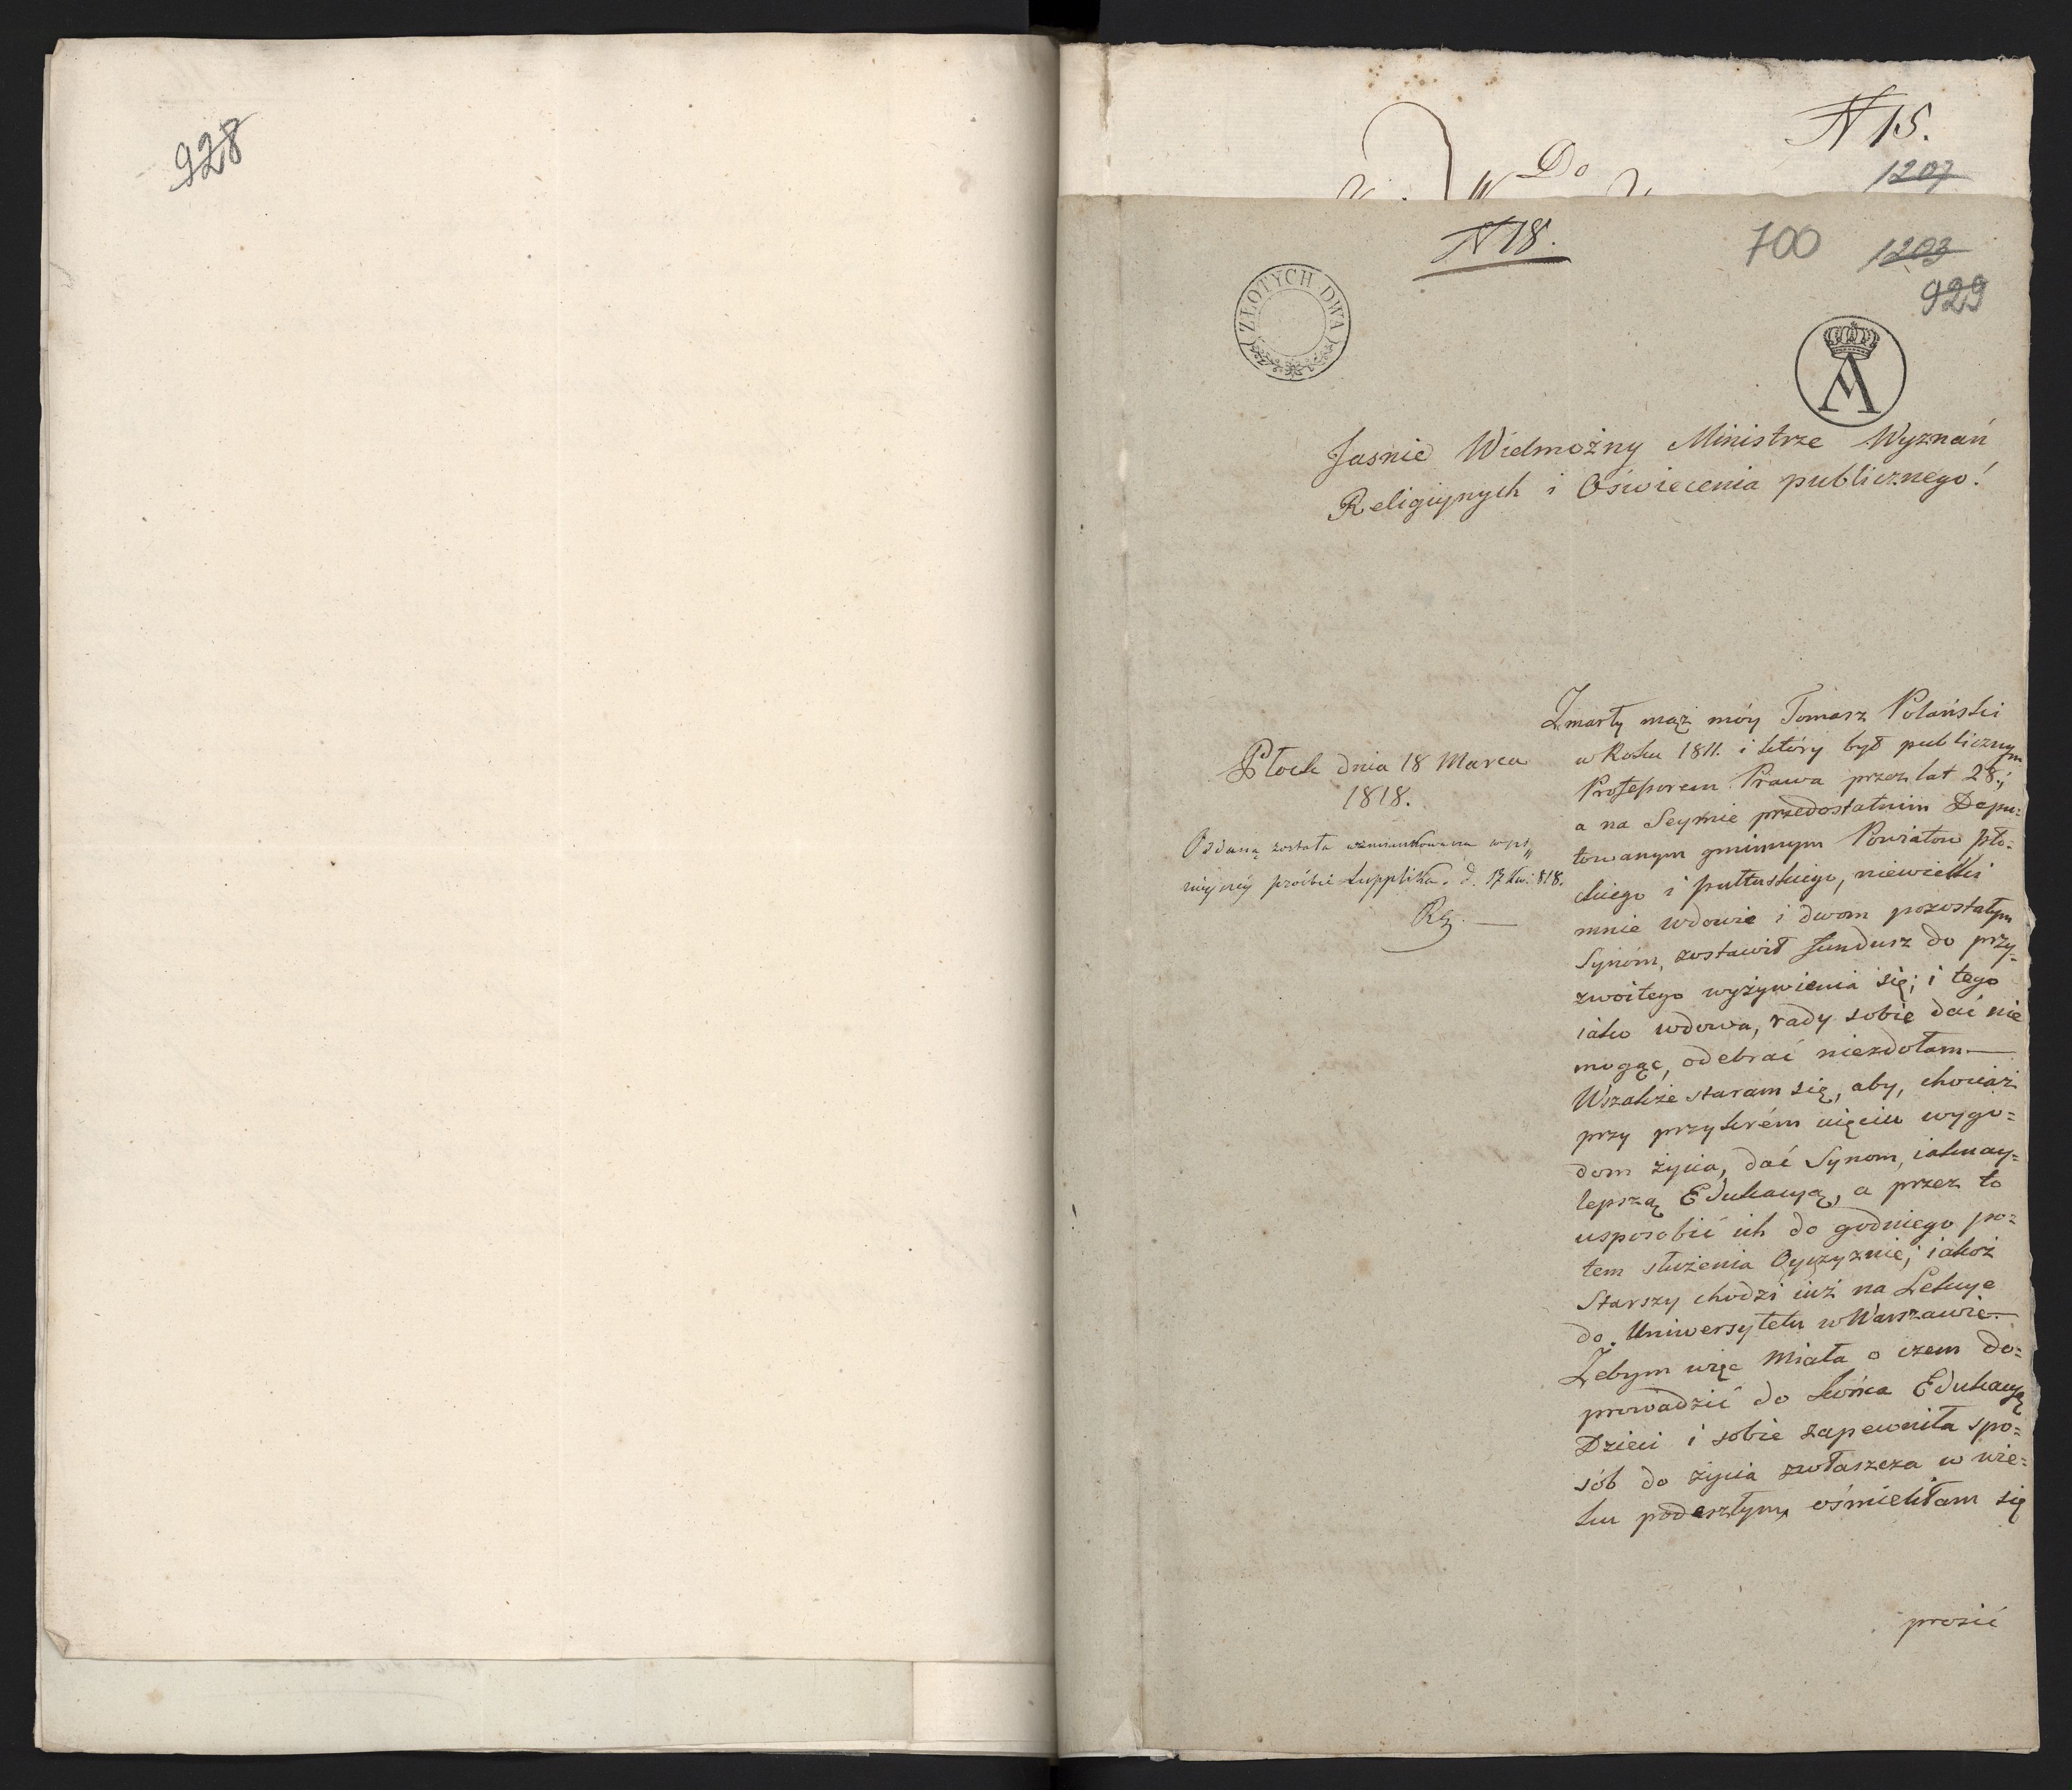 928
N 15.
1207
Do
N 18.
700
1203
929
ZŁOTYCH DWA
A
Jasnie Wielmożny Ministrze Wyznań
Religiynych i Oświecenia publicznego!
Płock dnia 18 Marca
1818.
Oddaną została wzmiankowana w ni„
nieyszey prośbie Supplika. d. 17 Kw: 818.
Zmarły mąż móy Tomasz Polański
w Roku 1811. i który był publicznym
Professorem Prawa przez lat 28.;
a na Seymie przedostatnim Depu=
towanym gminnym Powiatow pło=
ckiego i pułtuskiego, niewielki
mnie wdowie i dwom pozostałym
Synom, zostawił fundusz do przy=
zwoitego wyżywienia się; i tego
iako wdowa, rady sobie dać nie
mogąc, odebrać niezdołam —
Wszakże staram się, aby, chociaż
przy przykrém uięciu wygo=
dom życia, dać Synom, iaknay=
lepszą Edukacyą, a przez to
usposobić ich do godniego po=
tem służenia Oyczyznie; iakoż
Starszy chodzi iuż na Lekcye
do Uniwersytetu w Warszawie. —
Żebym więc miała o czem do=
prowadzić do końca Edukacyą
Dzieci i sobie zapewniła spo=
sób do życia zwłaszcza w wie=
ku podeszłym, ośmieliłam się
prosić